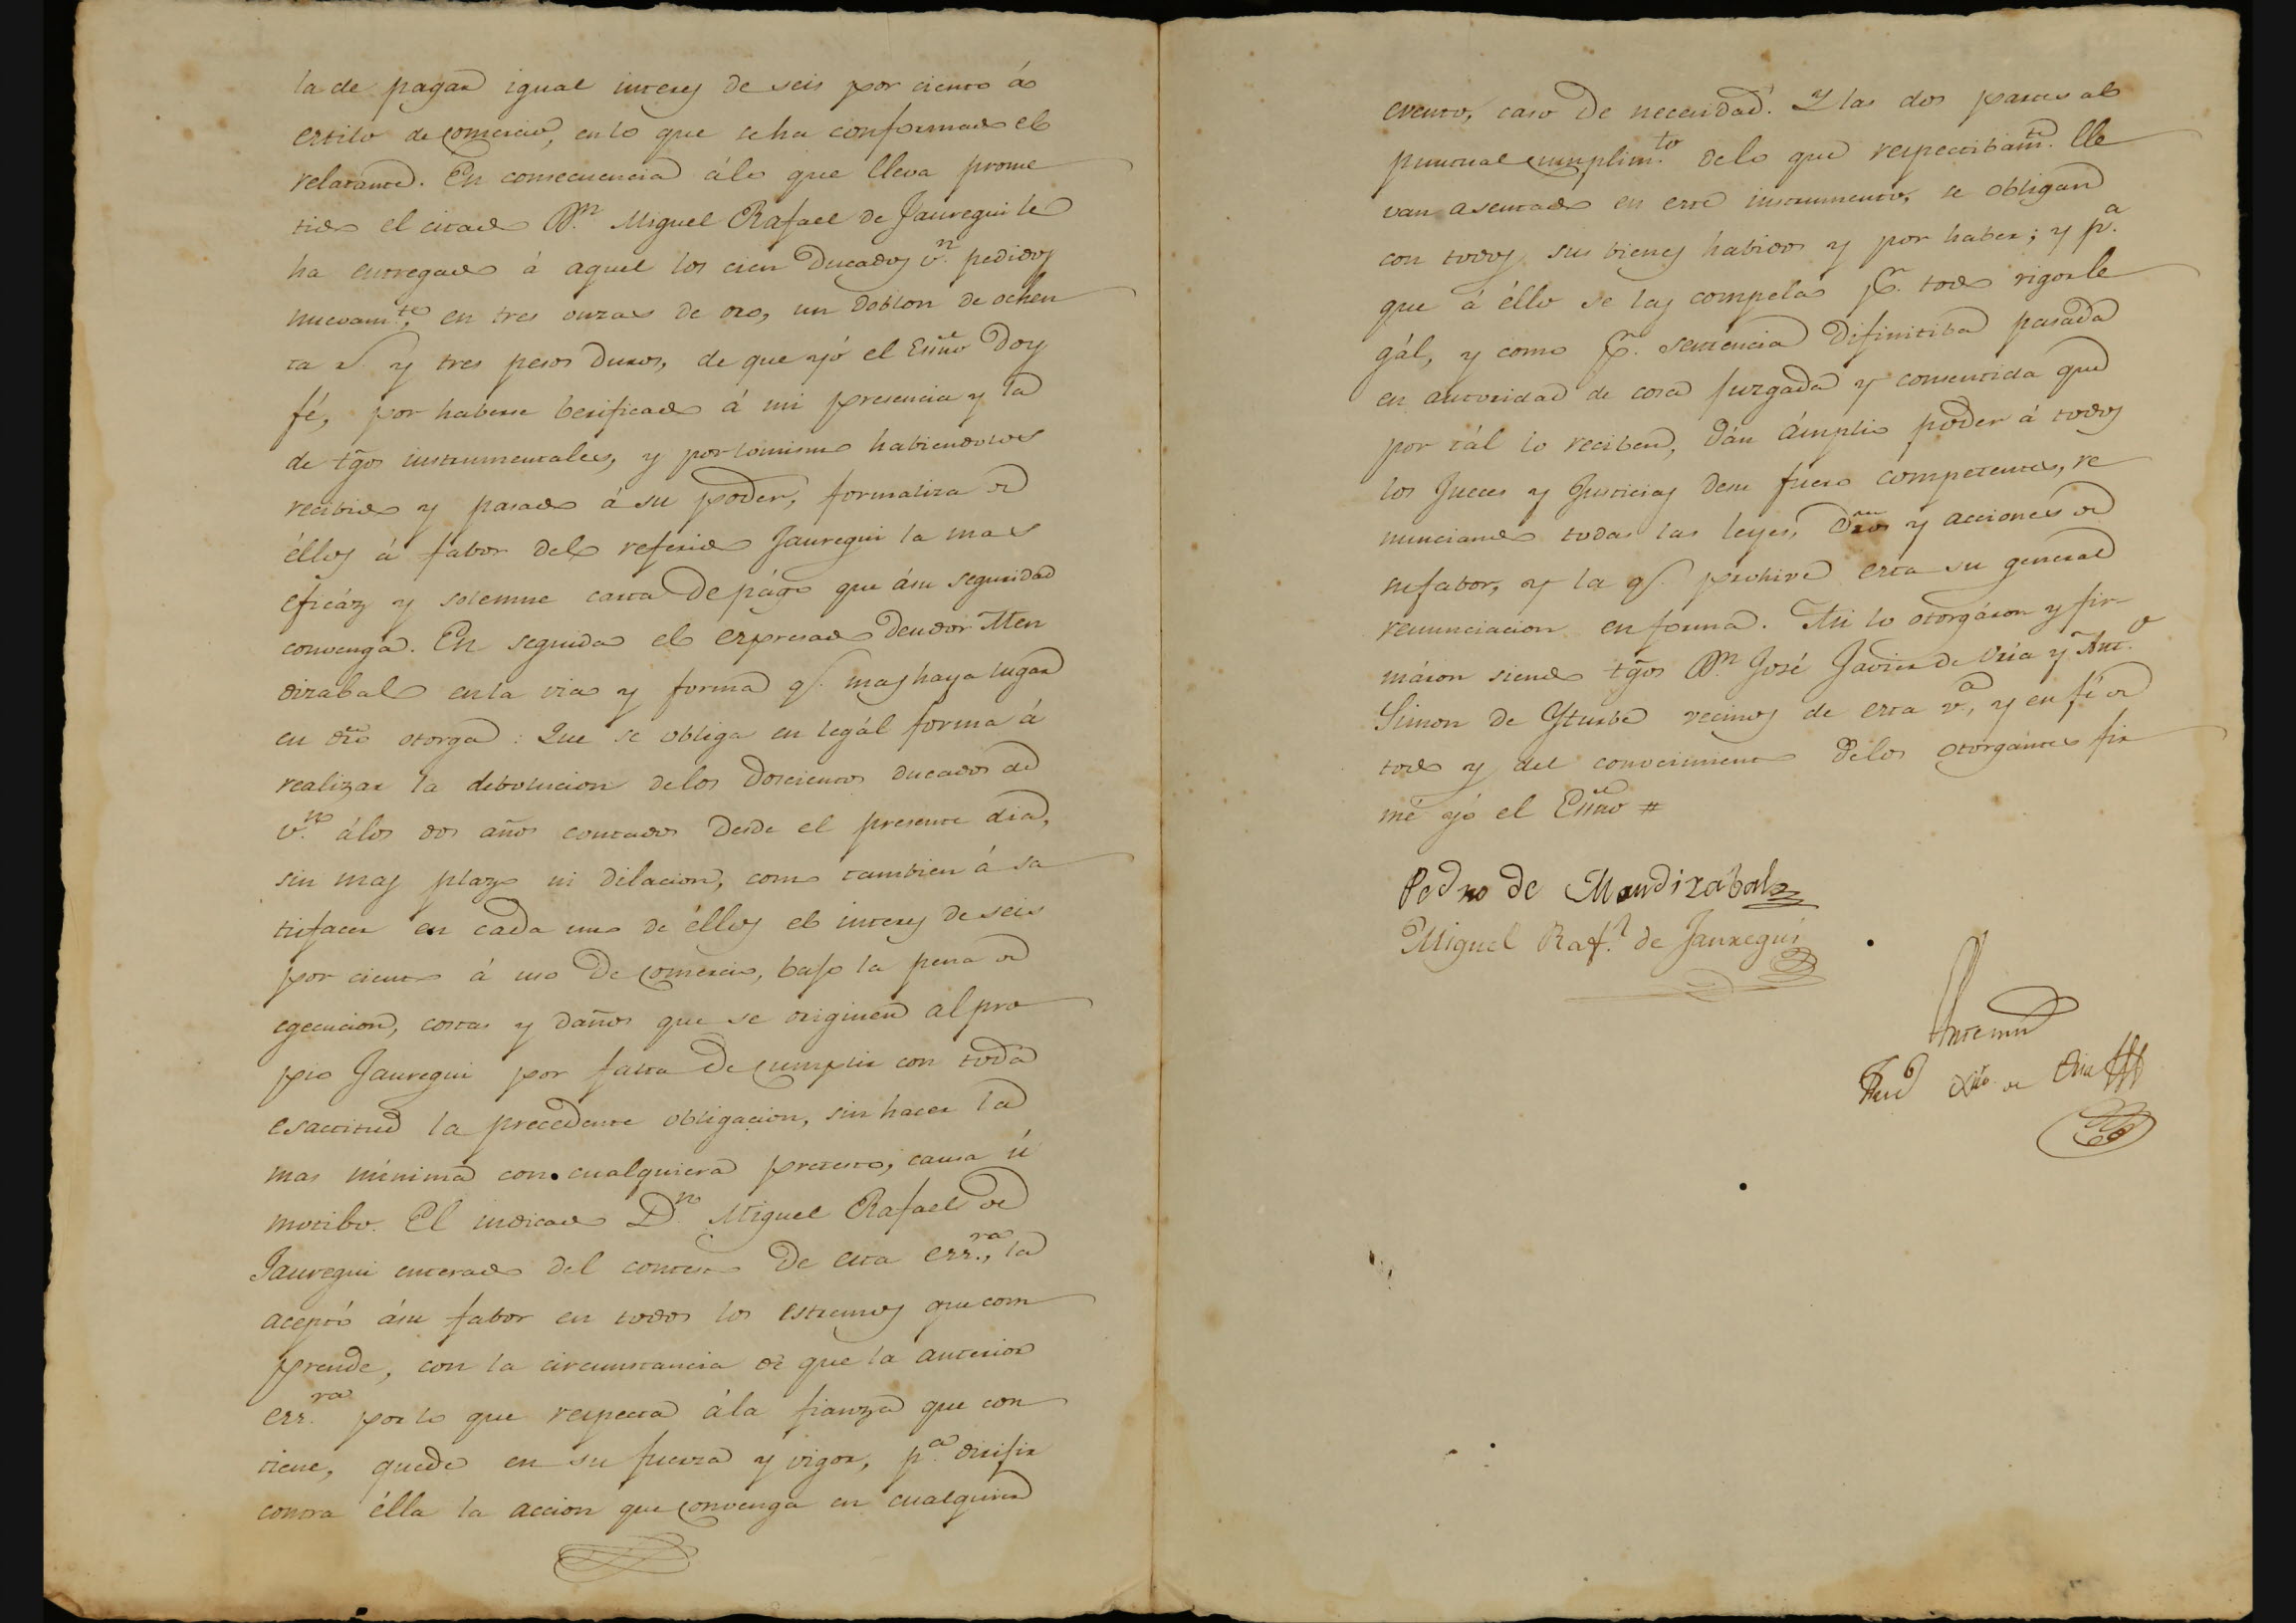 la de pagar igual interes de seis por ciento á
estilo de comercio, en lo que se ha conformado el
relatante. En consecuencia á lo que lleva prome
tido el citado Dn. Miguel Rafael de Jauregui le
ha entregado á aquel los cien Ducados vn. pedidos
nuevamte. en tres onzas de oro, un doblon de ochen
ta rs. y tres pesos duros, de que yó el Essno Doy
fé, por haberse berificado á mi presencia y la
de tgos instrumentales, y por lo mismo habiendolos
recibido y pasado á su poder, formaliza de
éllos á fabor del referido Jauregui la mas
eficáz y solemne carta de págo que á su seguridad
convenga. En seguida el expresado deudor Men
dizabal en la via y forma q. mas haya lugar
en dro otorga: Que se obliga en legál forma á
realizar la debolucion de los doscientos ducados de
vn. á los dos años contados desde el presente dia,
sin mas plazo ni dilacion, como tambien á sa
tisfacer en cada uno de éllos el interes de seis
por ciento á uso de comercio, bajo la pena de
egecucion, costas y daños que se originen al pro
pio Jauregui por falta de cumplir con toda
esactitud la precedente obligacion, sin hacer la
mas mínima con cualquiera pretesto, causa ú
motibo. El indicado Dn. Miguel Rafael de
Jauregui enterado del contesto de esta essra., la
aceptó á su fabor en todos los estremos que com
prende, con la circunstancia de que la anterior
essra. por lo que respecta á la fianza que con
tiene, quede en su fuerza y vigor, pa. dirijir
contra élla la accion que convenga en cualquiera
evento, caso de necesidad. Y las dos partes al
puntual cumplimto. de lo que respectibamte. lle
van asentado en este instrumento, se obligan
con todos sus bienes habidos y por haber; y pa.
que á éllo se las compela p. todo rigor le
gál, y como p. sentencia difinitiba pasada
en autoridad de cosa juzgada y consentida que
por tál lo reciben, dán ámplio poder á todos
los Jueces y Justicias de su fuero competentes, re
nunciando todas las leyes, dros y acciones de
su fabor, y la q. prohive esta su general
renunciacion en forma. Asi lo otorgáron y fir-
máron siendo tgos Dn. José Javier de Uria y Anto.
Simon de Yturbe vecinos de esta va., y en fé de
todo y del conocimiento de los otorgantes fir
mé yó el Essno #
Pedro de Mendizabal
Miguel Rafl. de Jauregui
Ante mi
de Uria